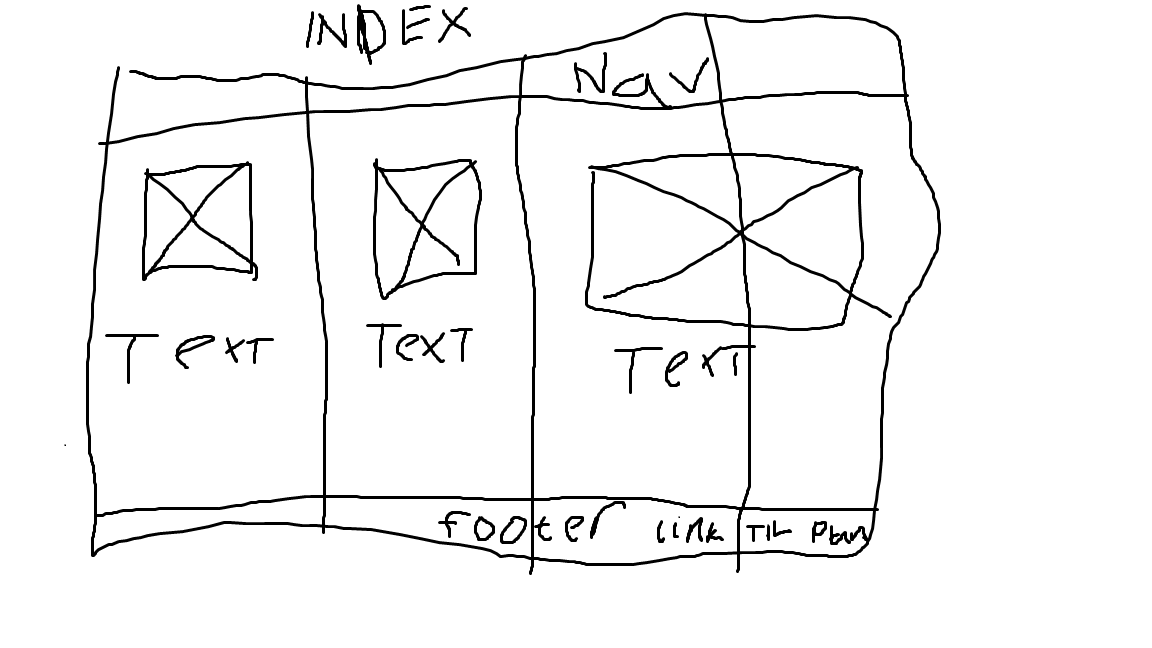 INDEX
Nav
Text TexT TexT
footer link TIL Plan